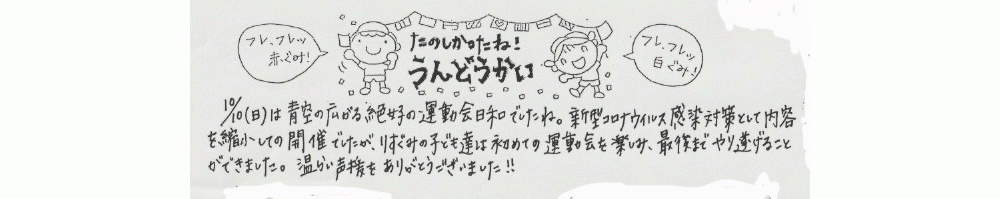 フレ、フレッ
赤ぐみ!
たのしかったね!
うんどうかい
フレ、フレッ
白ぐみ!
10/10(日)は青空の広がる絶好の運動会日和でしたね。新型コロナウイルス感染対策として内容
を縮小しての開催でしたが、りすぐみの子ども達は初めての運動会を楽しみ、最後までやり遂げること
ができました。温かい声援をありがとうございました!!